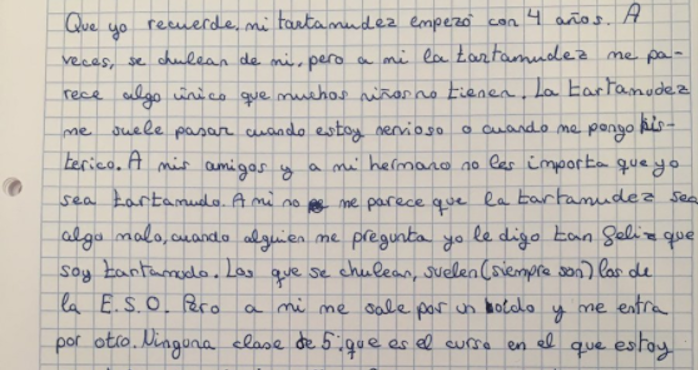 Que yo recuerde, mi tartamudez empezó con 4 años. A
veces, se chulean de mi, pero a mi la tartamudez me pa-
rece algo único que muchos niños no tienen. La tartamudez
me suele pasar cuando estoy nervioso o cuando me pongo his-
terico. A mis amigos y a mi hermano no les importa que yo
sea tartamudo. A mi no me parece que la tartamudez sea
algo malo, cuando alguien me pregunta yo le digo tan feliz que
soy tartamudo. Los que se chulean, suelen (siempre son) los de
la E.S.O. Pero a mi me sale por un y me entra
por otro. Ninguna clase de 5: que es el curso en el que estoy